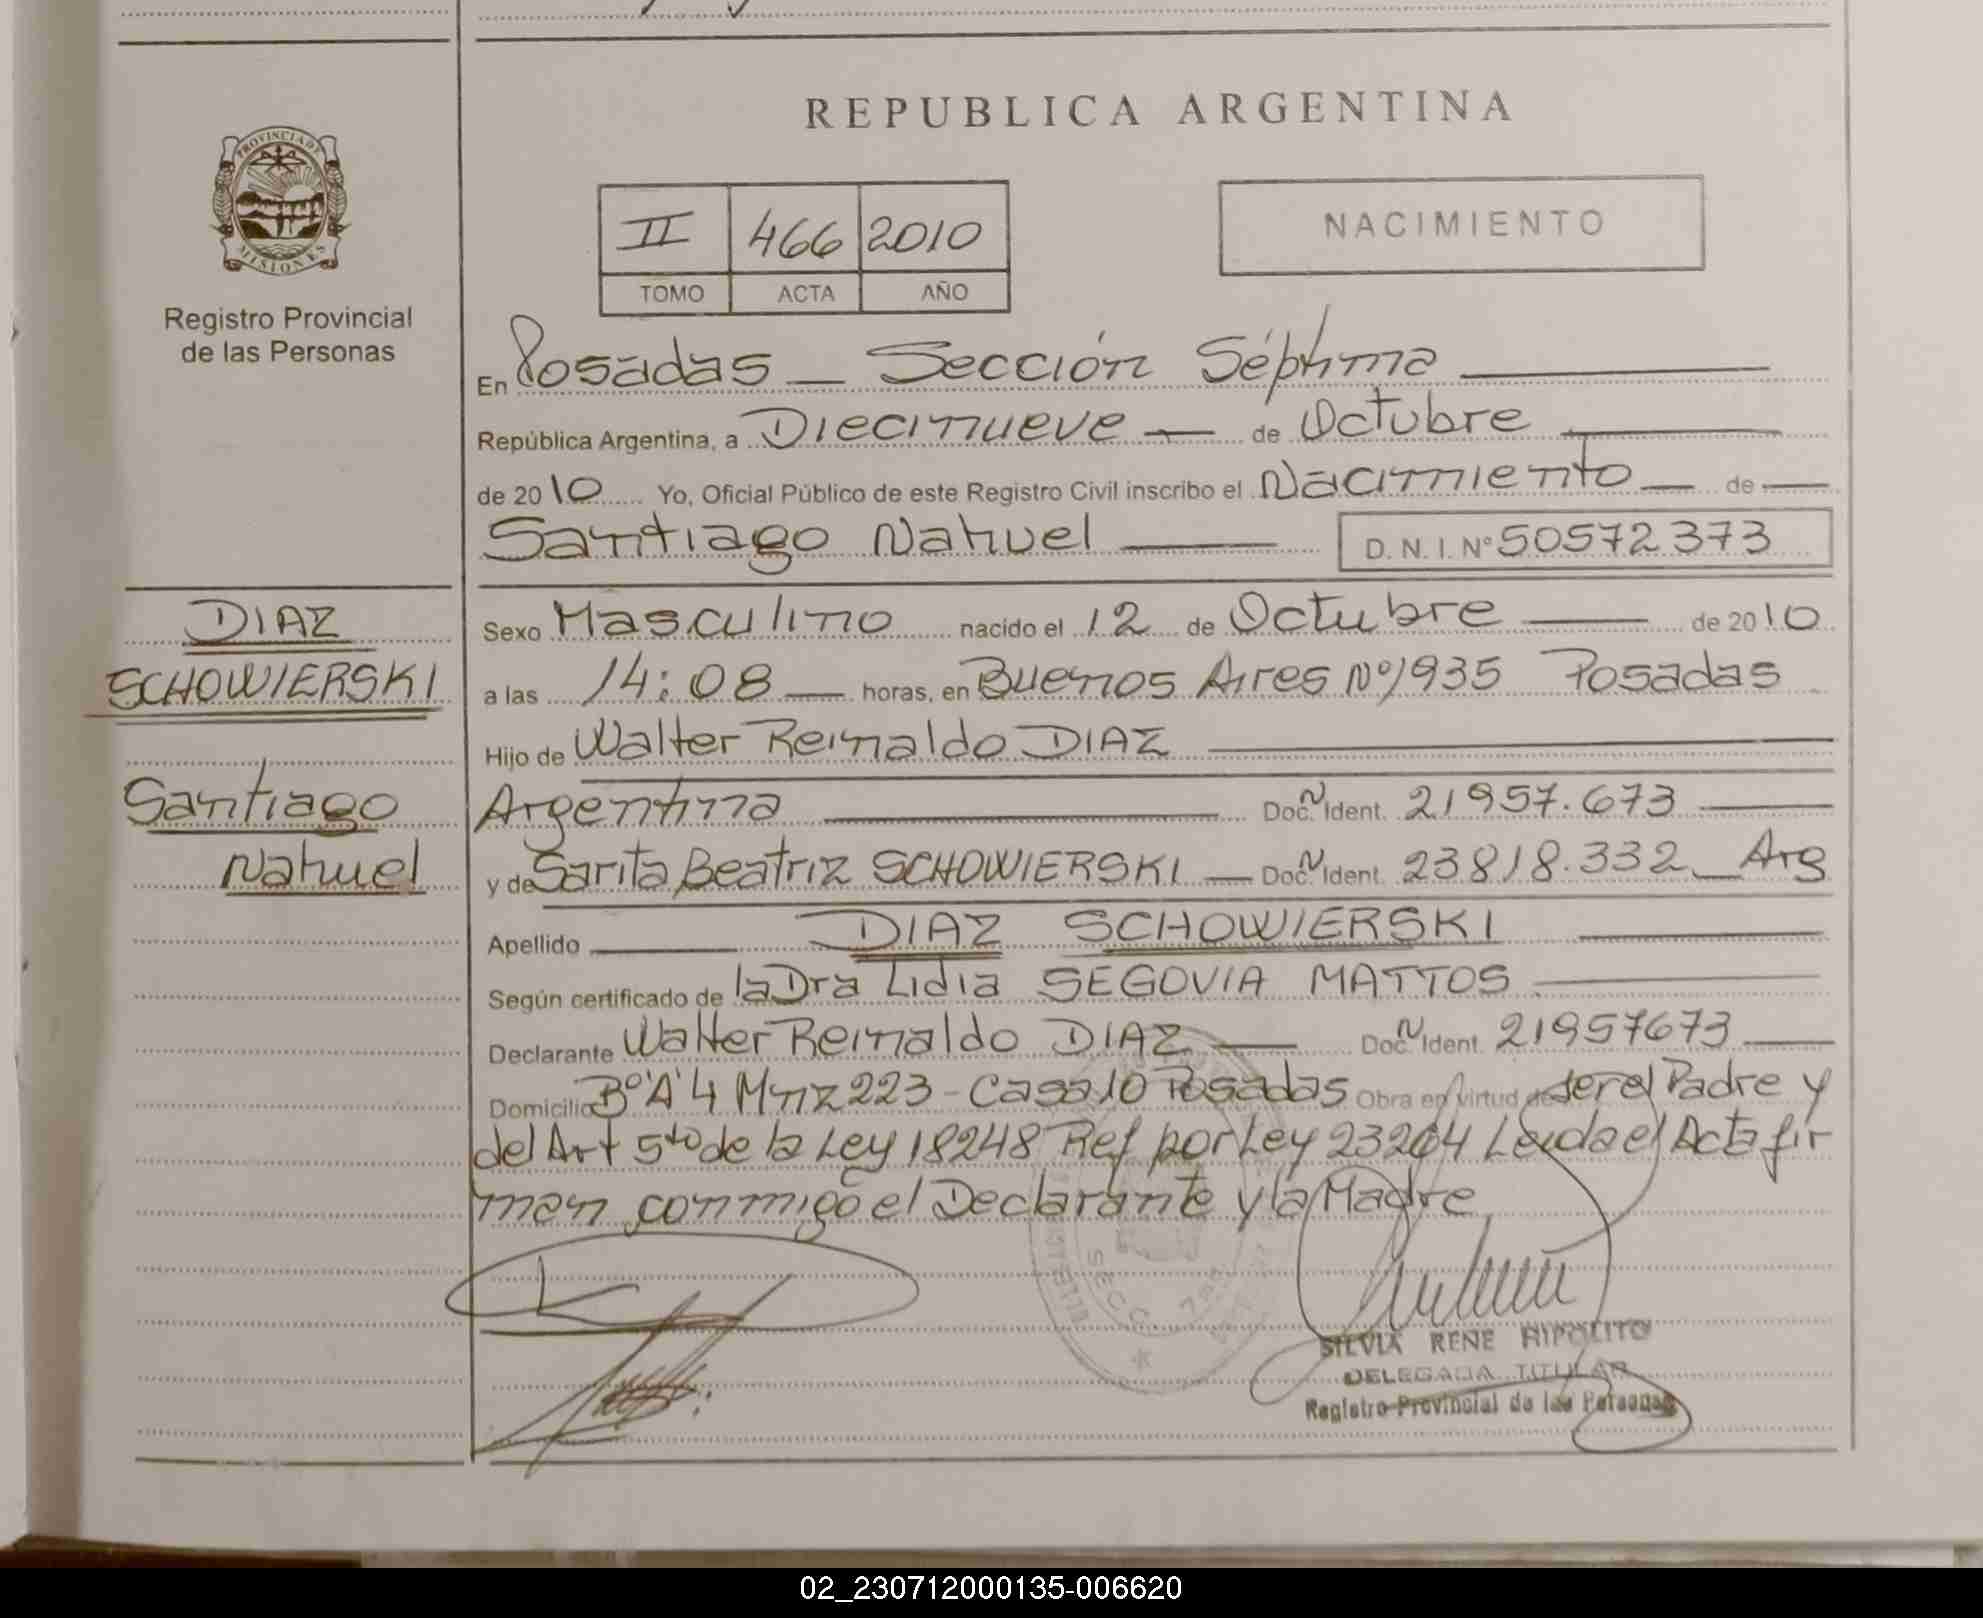 REPUBLICA ARGENTINA
PROVINCIA DE
MISIONES
Registro Provincial
de las Personas
II 466 2010
TOMO ACTA AÑO
NACIMIENTO
En Posadas — Sección Séptima —
República Argentina, a Diecinueve — de Octubre —
de 2010 Yo, Oficial Público de este Registro Civil inscribo el Nacimiento — de —
Santiago Nahuel — D.N.I. Nº 50572373
DIAZ
SCHOWIERSKI
Santiago
Nahuel
Sexo Masculino nacido el 12 de Octubre — de 2010
a las 14:08 — horas, en Buenos Aires Nº 1935 Posadas
Hijo de Walter Reinaldo DIAZ —
Argentina — Doc. Ident. 21957.673 —
y de Sarita Beatriz SCHOWIERSKI — Doc. Ident. 23818.332 — Arg
Apellido — DIAZ SCHOWIERSKI —
Según certificado de la Dra Lidia SEGOVIA MATTOS —
Declarante Walter Reinaldo DIAZ — Doc. Ident. 21957673 —
Domicilio Bº "A" 4 Mnz 223 - Casa 10 Posadas Obra en virtud de ser el Padre y
del Art 5to de la Ley 18248 Ref por Ley 23264 Leida el Acta fir
man conmigo el Declarante y la Madre
SECC. 7ma
SILVIA RENE HIPOLITO
DELEGADA TITULAR
Registro Provincial de las Personas
02_230712000135-006620